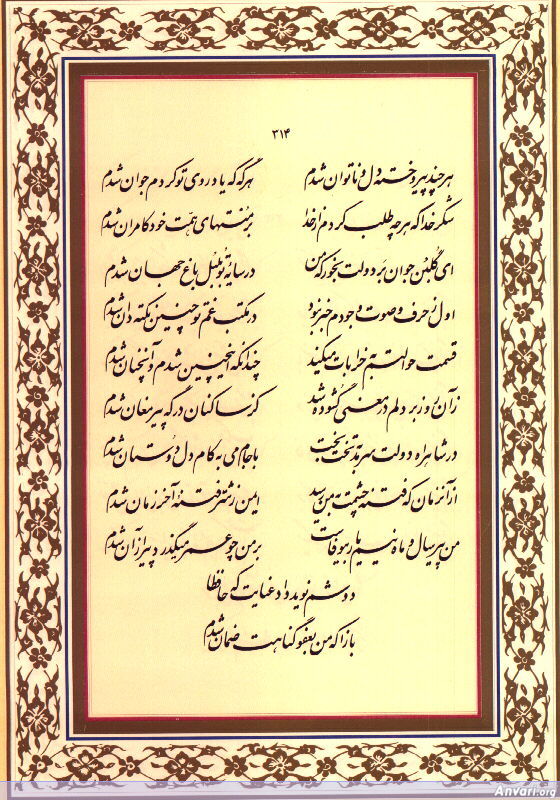 ۳۱۴
هر چند پیر و خسته دل و ناتوان شدم هر گه که یاد روی تو کردم جوان شدم
شکر خدا که هر چه طلب کردم از خدا بر منتهای همّت خود کامران شدم
ای گلبُن جوان بَر دولت بخور که من در سایهٔ تو بلبل باغ جهان شدم
اول ز حرف و صوت وجودم خبر نبود در مکتب غم تو چنین نکته دان شدم
قسمت حوالتم به خرابات میکند چندانکه اینچنین شدم و آنچنان شدم
زآن روز بر دلم در معنی گشوده شد کز ساکنان درگه پیر مغان شدم
در شاهراه دولت سرمد به تخت بخت با جام می به کام دل دوستان شدم
از آن زمان که فتنهٔ چشمت به من رسید ایمن ز شرّ فتنهٔ آخر زمان شدم
من پیر سال و ماه نیم یار بیوفاست بر من چو عمر میگذرد پیر از آن شدم
دوشم نوید داد عنایت که حافظا
بازآ که من بعفو گناهت ضمان شدم
Anvari.org